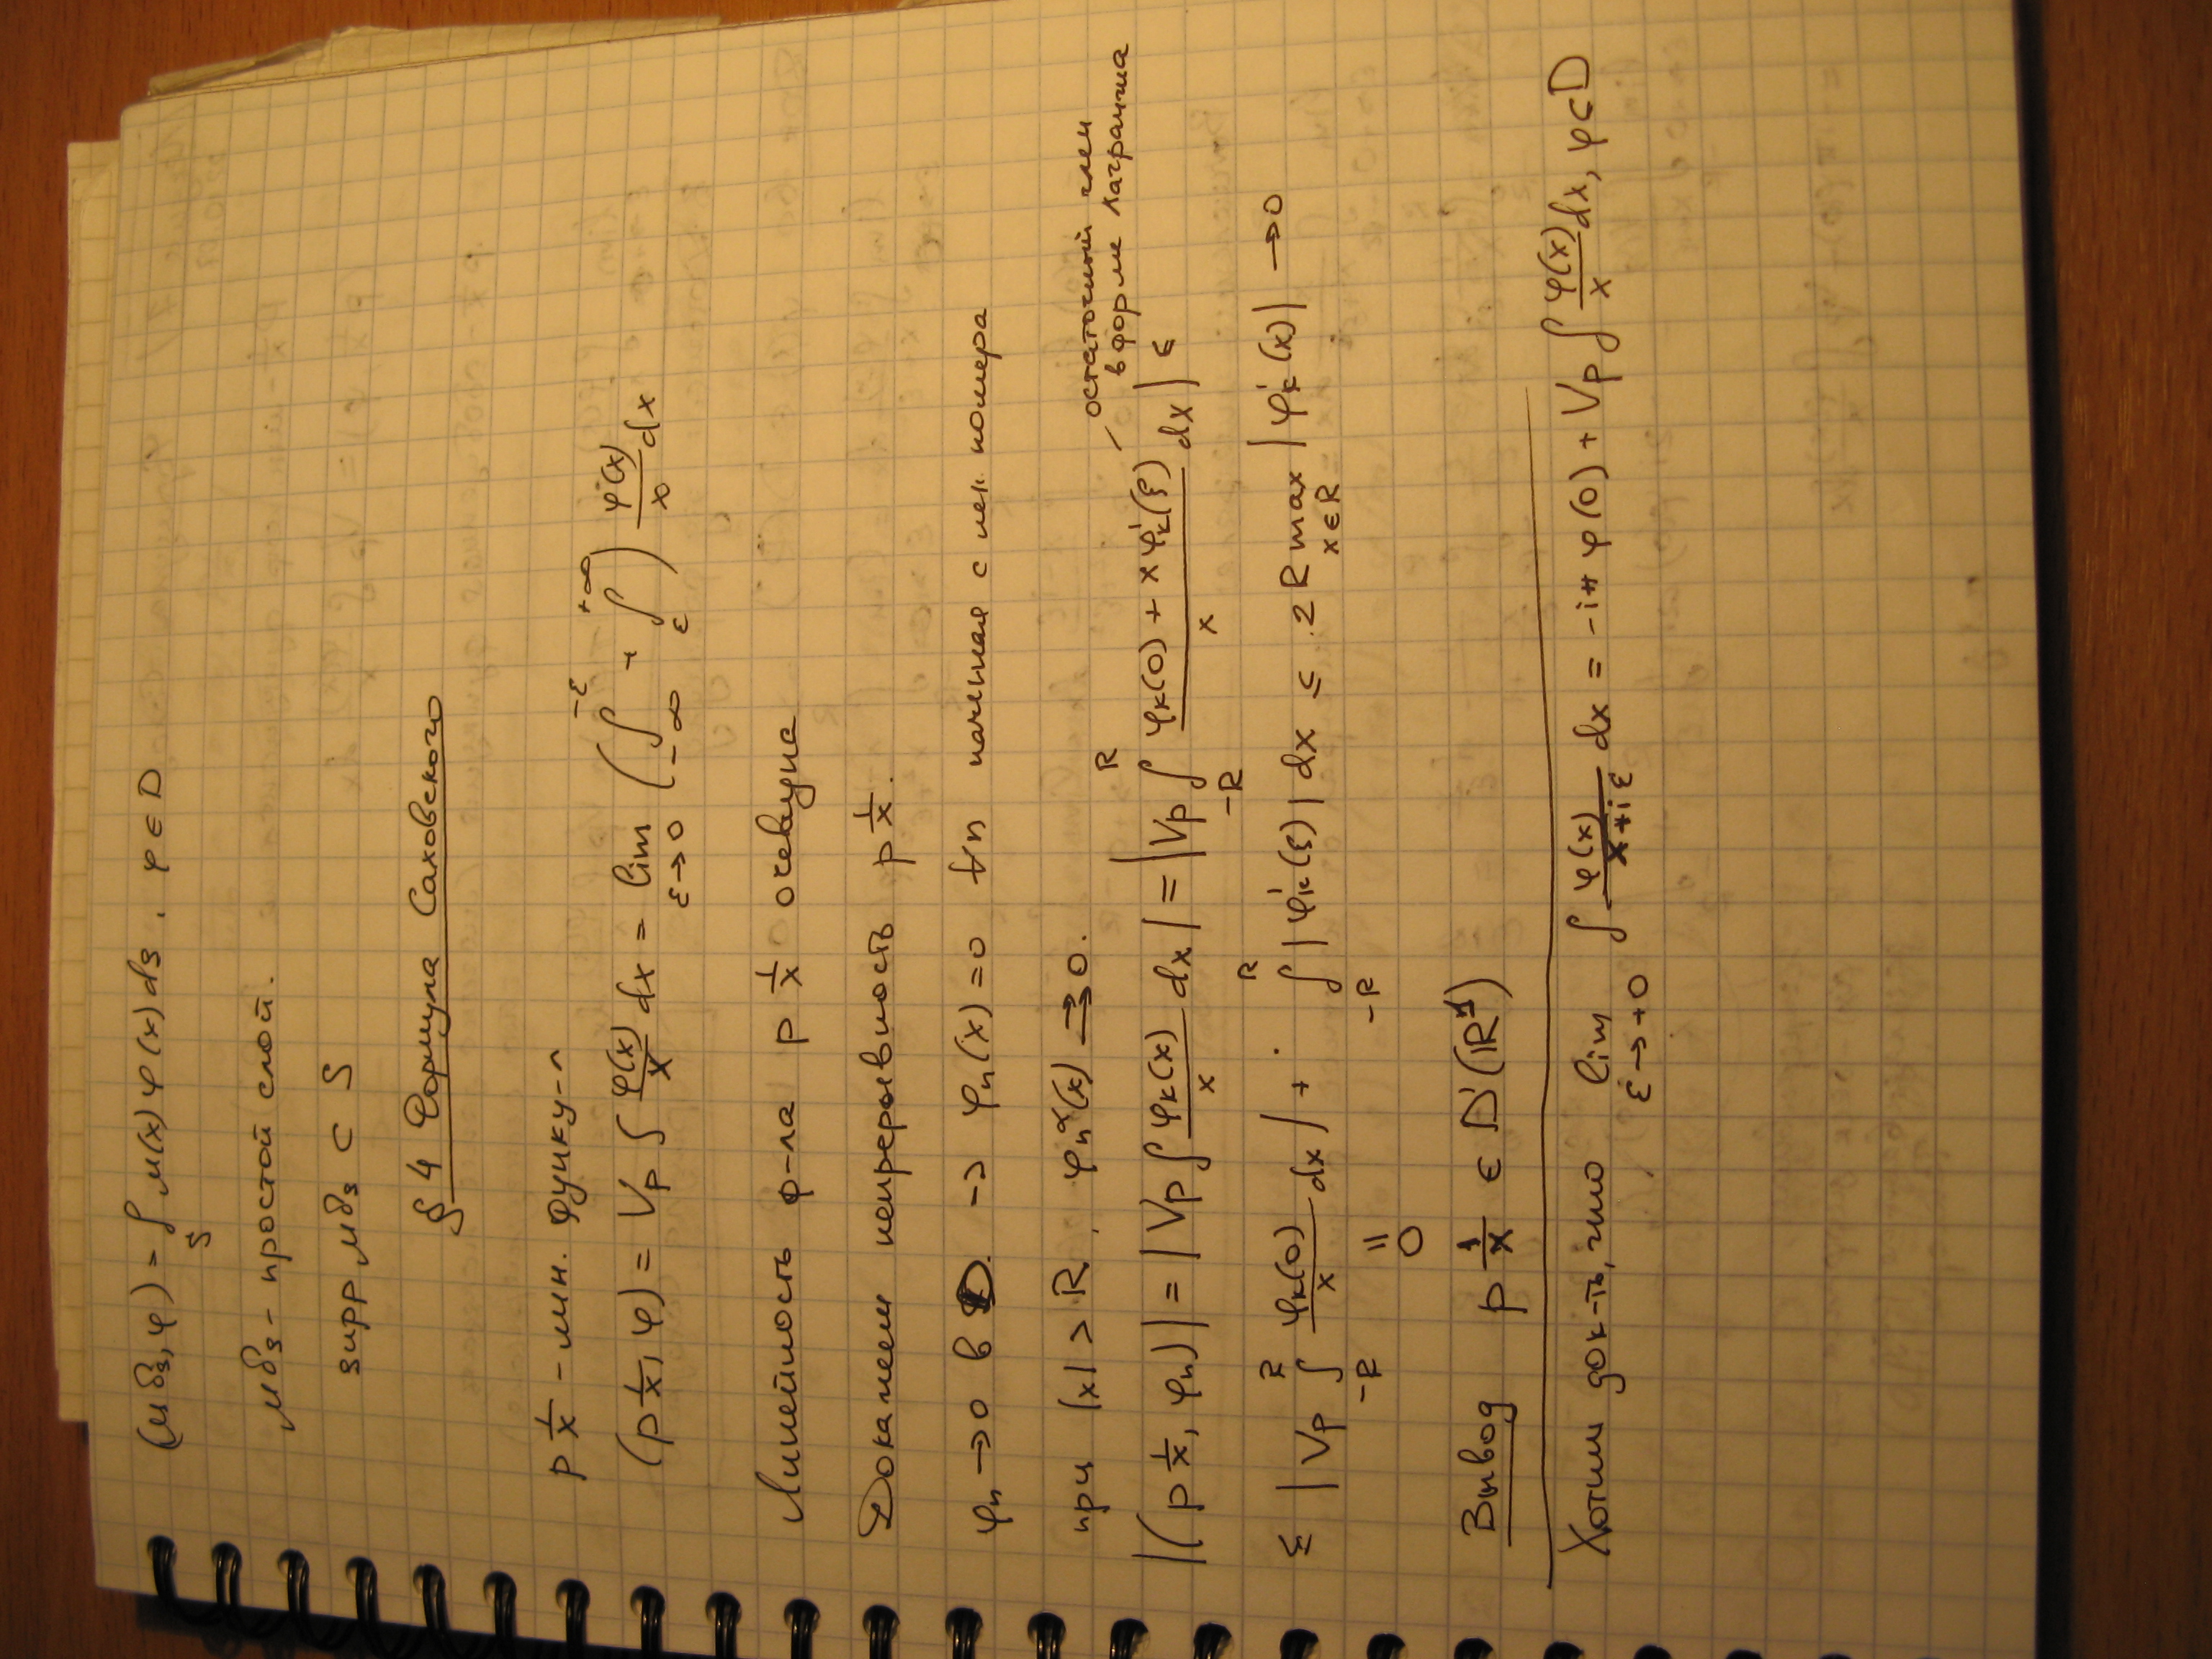 (μδ_s, φ) = ∫_S μ(x) φ(x) ds, φ ∈ D
μδ_s - простой слой.
supp μδ_s ⊂ S
§ 4 Формула Сахоцкого
p 1/x - лин. функц-л
(p 1/x, φ) = Vp ∫ φ(x)/x dx = lim_{ε→0} (∫_{-∞}^{-ε} + ∫_ε^{+∞}) φ(x)/x dx
Линейность ф-ла p 1/x очевидна
Докажем непрерывность p 1/x.
φ_n → 0 в D. → φ_n(x) = 0 ∀n начиная с нек номера
при |x| > R, φ_n^α(x) ⇉ 0.
остаточный член
в форме Лагранжа
|(p 1/x, φ_n)| = |Vp ∫ φ_k(x)/x dx| = |Vp ∫_{-R}^{R} (φ_k(0) + x φ'_k(ξ))/x dx| ≤
≤ |Vp ∫_{-R}^{R} φ_k(0)/x dx| + ∫_{-R}^{R} |φ'_k(ξ)| dx ≤ 2R max_{x∈R} |φ'_k(x)| → 0
= 0
Вывод p 1/x ∈ D'(R^1)
Хотим док-ть, что lim_{ε→+0} ∫ φ(x)/(x+iε) dx = -iπ φ(0) + Vp ∫ φ(x)/x dx, φ ⊂ D